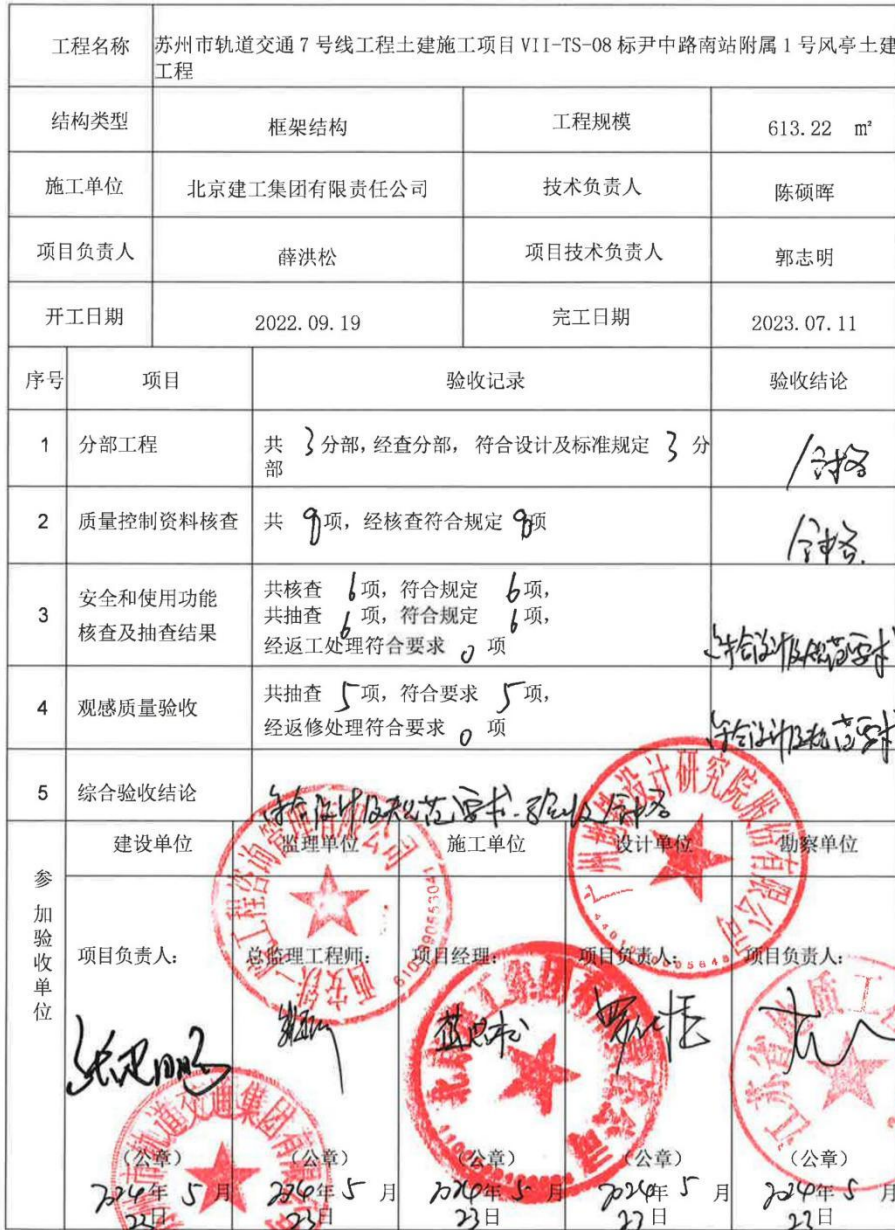 工程名称
苏州市轨道交通7号线工程土建施工项目VII-TS-08标尹中路南站附属1号风亭土建
工程
结构类型 框架结构 工程规模 613.22 m²
施工单位 北京建工集团有限责任公司 技术负责人 陈硕晖
项目负责人 薛洪松 项目技术负责人 郭志明
开工日期 2022.09.19 完工日期 2023.07.11
序号 项目 验收记录 验收结论
1 分部工程 共 3 分部,经查分部, 符合设计及标准规定 3 分
部
合格
2 质量控制资料核查 共 9项, 经核查符合规定 9项 合格.
3 安全和使用功能
核查及抽查结果
共核查 6项, 符合规定 6项,
共抽查 6 项, 符合规定 6项,
经返工处理符合要求 0 项
符合设计及规范要求
4 观感质量验收
共抽查 5项, 符合要求 5项,
经返修处理符合要求 0 项
符合设计及规范要求
5 综合验收结论 符合设计及规范要求.验收合格
参加验收单位
建设单位 监理单位 施工单位 设计单位 勘察单位
项目负责人: 总监理工程师: 项目经理: 项目负责人: 项目负责人:
(公章) (公章) (公章) (公章) (公章)
2024年 5 月 2024年 5 月 2024年 5 月 2024年 5 月 2024年 5 月
23日 23日 23日 23日